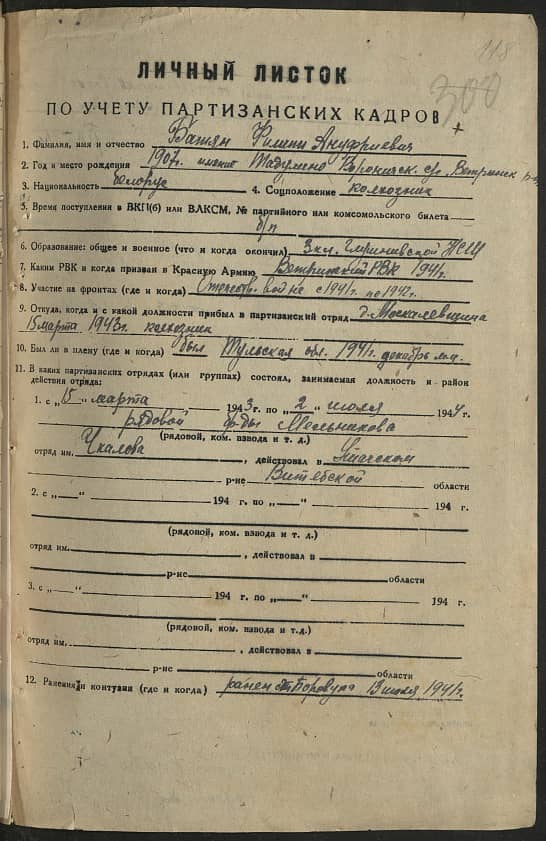 118
300
ЛИЧНЫЙ ЛИСТОК
ПО УЧЕТУ ПАРТИЗАНСКИХ КАДРОВ +
1. Фамилия, имя и отчество Батян Филипп Ануфриевич
2. Год и место рождения 1907г. имение
3. Национальность белорус 4. Соцположение колхозник
5. Время поступления в ВКП(б) или ВЛКСМ, № партийного или комсомольского билета
б/п
6. Образование: общее и военное (что и когда окончил) 3 кл. НСШ
7. Каким РВК и когда призван в Красную Армию Ветринский РВК 1941г.
8. Участие на фронтах (где и когда) Отечеств. войне с 1941 г. по 1942г.
9. Откуда, когда и с какой должности прибыл в партизанский отряд д. Москалевщина
15 марта 1943г. колхозник
10. Был ли в плену (где и когда) был Тульская обл. 1941г. декабрь м-ц.
11. В каких партизанских отрядах (или группах) состоял, занимаемая должность и район
действия отряда:
1. с „15“ марта 1943 г. по „2“ июля 1944 г.
рядовой бр-ды Мельникова
(рядовой, ком. взвода и т. д.)
отряд им. Чкалова, действовал в Ушачском
р-не Витебской области
2. с „ “ 194 г. по „ “ 194 г.
(рядовой, ком. взвода и т. д.)
отряд им. , действовал в
р-не области
3. с „ “ 194 г. по „ “ 194 г.
(рядовой, ком. взвода и т.д.)
отряд им. , действовал в
р-не области
12. Ранения и контузии (где и когда) ранен Боровуха 13 июля 1941г.